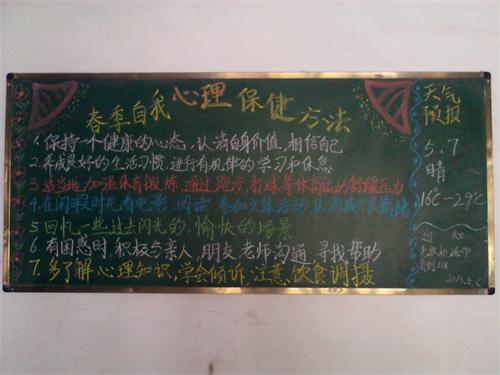 春季自我心理保健方法
1.保持一个健康的心态,认清自身价值,相信自己
2.养成良好的生活习惯,进行有规律的学习和休息
3.适当地加强体育锻炼,通过跑步、打球等体育运动舒缓压力
4.在闲暇时光看电影,阅读,参加文体活动,
5.回忆一些过去闪光的,愉快的场景
6.有困惑时,积极与亲人,朋友,老师沟通,寻找帮助
7.多了解心理知识,学会倾诉,注意饮食调摄
天气
预报
5.7
晴
16℃-29℃
通知